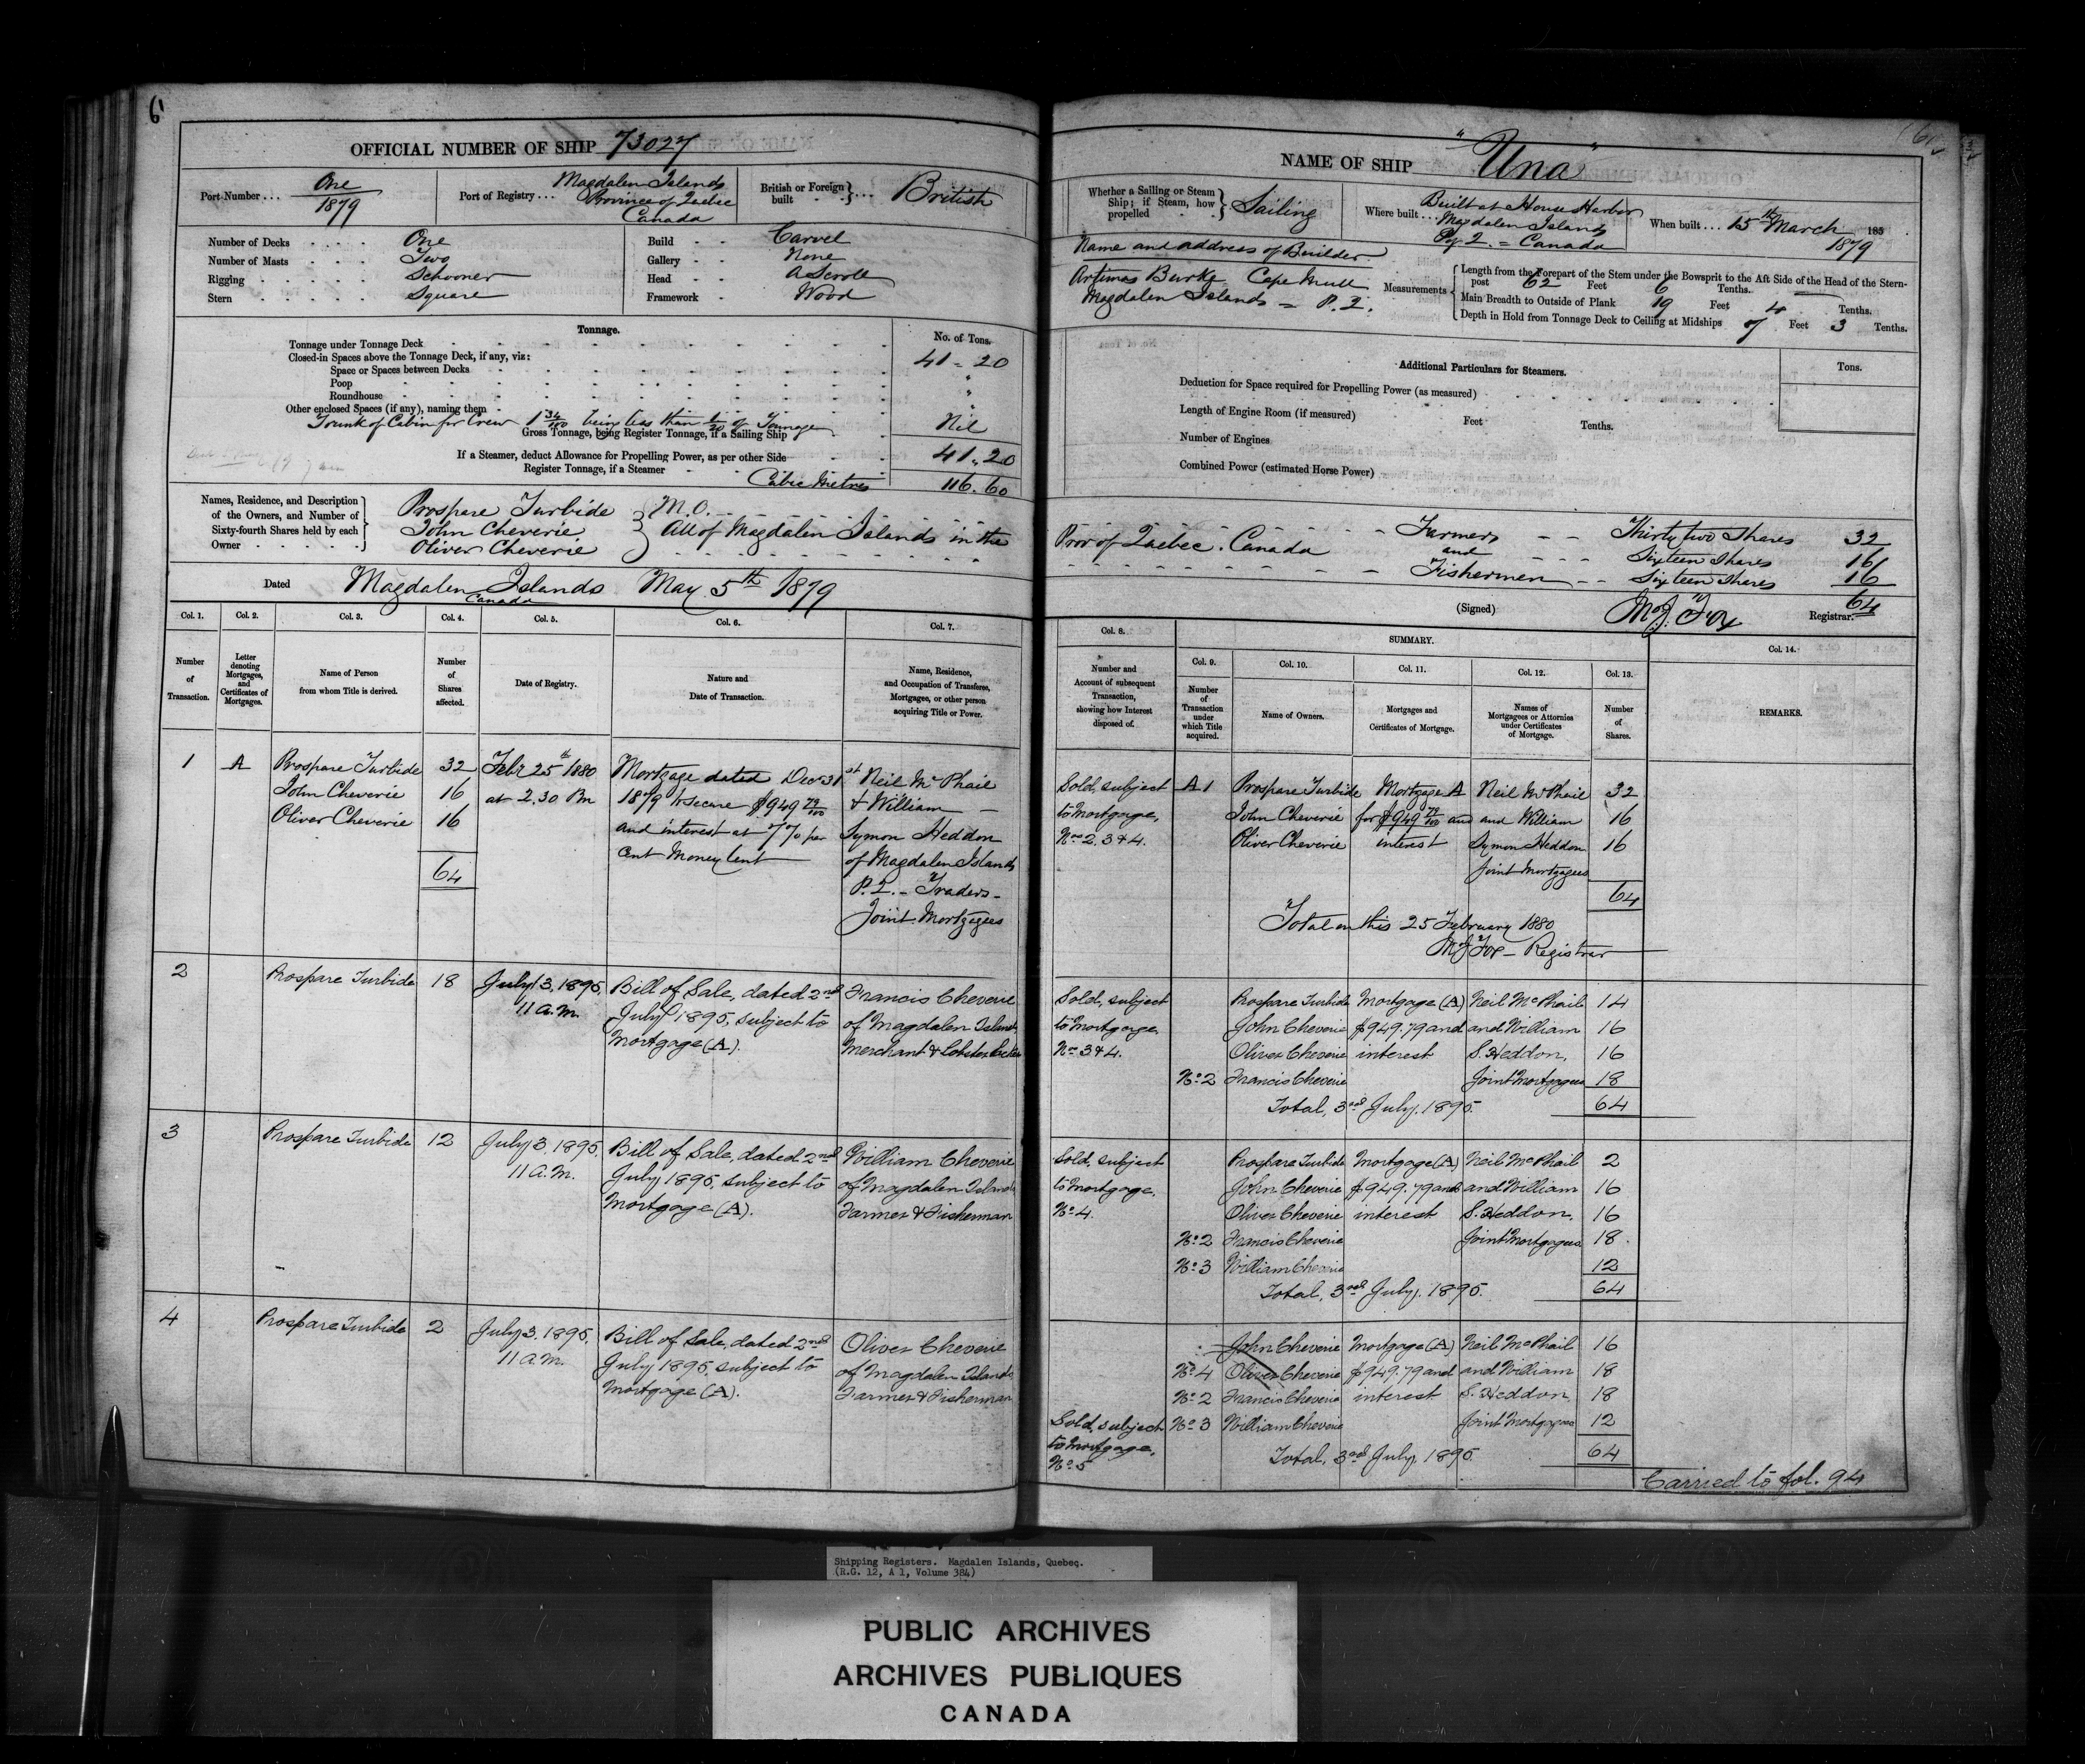 6
OFFICIAL NUMBER OF SHIP 73027
Port Number . . . One 1879
Port of Registry . . . Magdalen Islands Province of Quebec Canada
British or Foreign built } . . . British
Number of Decks . . . . One
Number of Masts . . . . Two
Rigging . . . . . Schooner
Stern . . . . . Square
Build - - Carvel
Gallery - - None
Head - - A Scroll
Framework - Wood
Tonnage.
No. of Tons.
Tonnage under Tonnage Deck 41 = 20
Closed-in Spaces above the Tonnage Deck, if any, viz:
Space or Spaces between Decks "
Poop "
Roundhouse "
Other enclosed Spaces (if any), naming them
Trunk of Cabin for Crew 1 34/100 being less than 1/20 of Tonnage Nil
Gross Tonnage, being Register Tonnage, if a Sailing Ship
If a Steamer, deduct Allowance for Propelling Power, as per other Side 41.20
Register Tonnage, if a Steamer
Cubic Metres 116.60
Names, Residence, and Description of the Owners, and Number of Sixty-fourth Shares held by each Owner
Prospare Turbide } M.O.
John Cheverie } All of Magdalen Islands in the
Oliver Cheverie
Dated Magdalen Islands Canada May 5th 1879
Col. 1. Col. 2. Col. 3. Col. 4. Col. 5. Col. 6. Col. 7.
Number of Transaction.
Letter denoting Mortgages, and Certificates of Mortgages.
Name of Person from whom Title is derived.
Number of Shares affected.
Date of Registry.
Nature and Date of Transaction.
Name, Residence, and Occupation of Transferee, Mortgagee, or other person acquiring Title or Power.
1 A Prospare Turbide 32 Feby 25th 1880 Mortgage dated Dec 31st Neil McPhail
John Cheverie 16 at 2.30 Pm 1879 to secure $949 79/100 & William
Oliver Cheverie 16 and interest at 7% per Symon Heddon
64 cent Money lent of Magdalen Islands
P.Q. - Traders -
Joint Mortgagees
2 Prospare Turbide 18 July 3, 1895, Bill of Sale, dated 2nd Francis Cheverie
11 a.m. July 1895, subject to of Magdalen Islands
Mortgage (A). Merchant & Lobster Packer
3 Prospare Turbide 12 July 3, 1895, Bill of Sale, dated 2nd William Cheverie
11 A.M. July 1895, subject to of Magdalen Islands
Mortgage (A). Farmer & Fisherman
4 Prospare Turbide 2 July 3, 1895, Bill of Sale, dated 2nd Oliver Cheverie
11 A.M. July 1895, subject to of Magdalen Islands
Mortgage (A). Farmer & Fisherman
6
NAME OF SHIP "Una"
Whether a Sailing or Steam Ship; if Steam, how propelled } Sailing
Where built . . . Built at House Harbor Magdalen Islands P.Q. = Canada
When built . . . 15th March 185 1879
Name and address of Builder
Artimas Burke Cape Mull
Magdalen Islands = P.Q.
Measurements
Length from the Forepart of the Stem under the Bowsprit to the Aft Side of the Head of the Stern-
post 62 Feet 6 Tenths.
Main Breadth to Outside of Plank 19 Feet 4 Tenths.
Depth in Hold from Tonnage Deck to Ceiling at Midships 7 Feet 3 Tenths.
Additional Particulars for Steamers.
Tons.
Deduction for Space required for Propelling Power (as measured)
Length of Engine Room (if measured) Feet Tenths.
Number of Engines
Combined Power (estimated Horse Power)
Prov of Quebec. Canada - - Farmers - - Thirty two Shares 32
and - - - Sixteen Shares 16
Fishermen - - Sixteen Shares 16
64
(Signed) M J Fox Registrar.
Col. 8. SUMMARY. Col. 14.
Col. 9. Col. 10. Col. 11. Col. 12. Col. 13.
Number and Account of subsequent Transaction, showing how Interest disposed of.
Number of Transaction under which Title acquired.
Name of Owners.
Mortgages and Certificates of Mortgage.
Names of Mortgagees or Attornies under Certificates of Mortgage.
Number of Shares.
REMARKS.
Sold, subject A 1 Prospare Turbide Mortgage A Neil McPhail 32
to Mortgage, John Cheverie for $949 79/100 and and William 16
Nos 2, 3 & 4. Oliver Cheverie interest Symon Heddon 16
Joint Mortgagees
64
Total on this 25 February 1880
M J Fox - Registrar
Sold, subject Prospare Turbide Mortgage (A) Neil McPhail 14
to Mortgage John Cheverie $949.79 and and William 16
Nos 3 & 4. Oliver Cheverie interest S. Heddon, 16
No 2 Francis Cheverie Joint Mortgagees 18
Total, 3rd July, 1895. 64
Sold, subject Prospare Turbide Mortgage (A) Neil McPhail 2
to Mortgage, John Cheverie $949.79 and and William 16
No 4. Oliver Cheverie interest S. Heddon, 16
No 2 Francis Cheverie Joint Mortgagees 18
No 3 William Cheverie 12
Total, 3rd July, 1895. 64
John Cheverie Mortgage (A) Neil McPhail 16
No 4 Oliver Cheverie $949.79 and and William 18
No 2 Francis Cheverie interest S. Heddon, 18
Sold, subject No 3 William Cheverie Joint Mortgagees 12
to Mortgage, Total, 3rd July, 1895. 64
No 5
Carried to fol. 94
Shipping Registers. Magdalen Islands, Quebec.
(R.G. 12, A 1, Volume 384)
PUBLIC ARCHIVES
ARCHIVES PUBLIQUES
CANADA